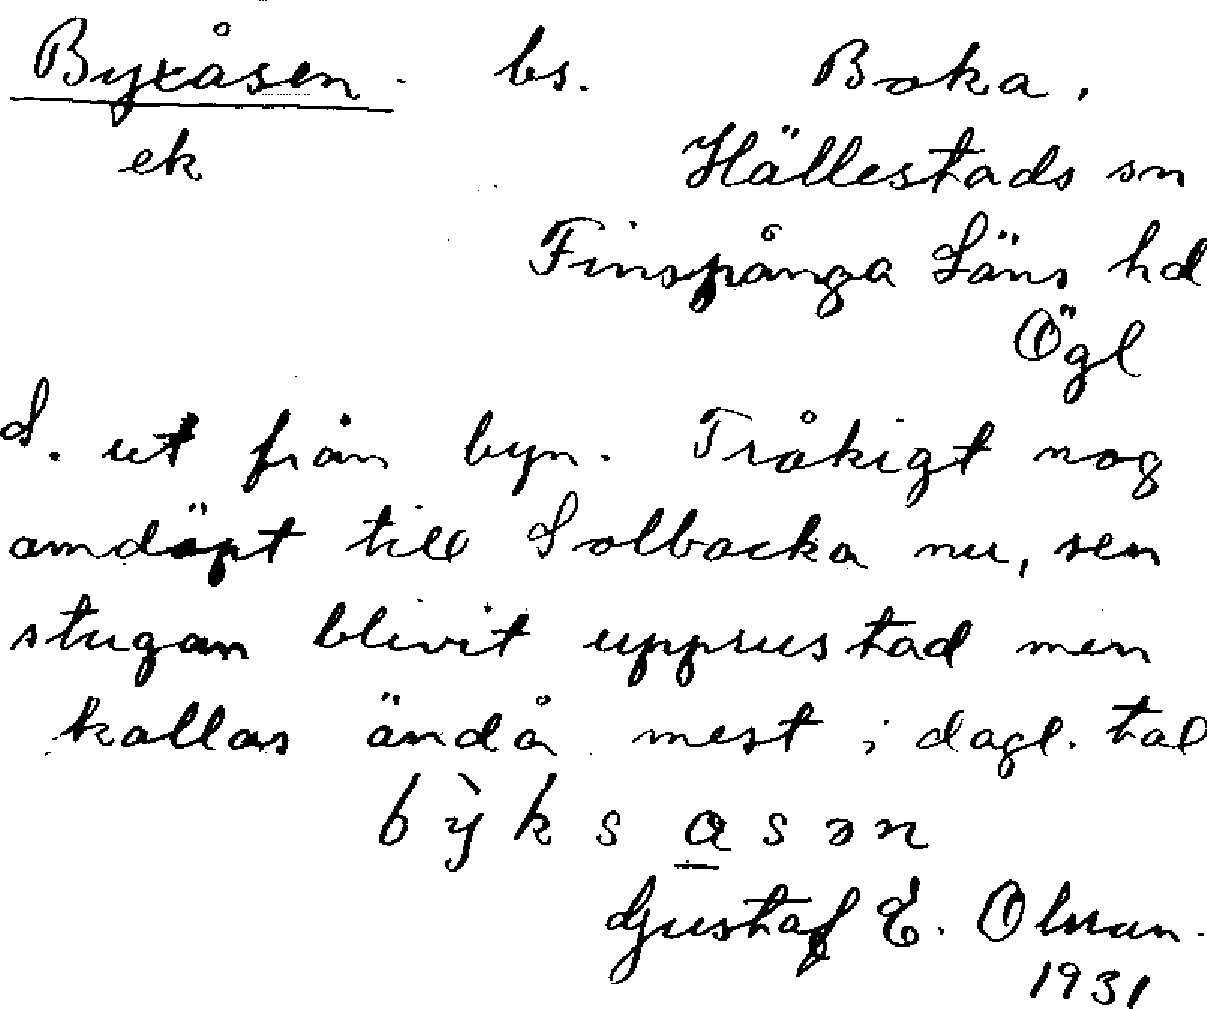 Byxåsen. bs. Boka.
ek Hällestads sn
Finspånga Läns hd
Ögl
S. ut från byn. Tråkigt nog
omdöpt till Solbacka nu, sen
stugan blivit upprustad men
kallas ändå mest i dagl. tal
bỳksasən
Gustaf E. Olsson.
1931